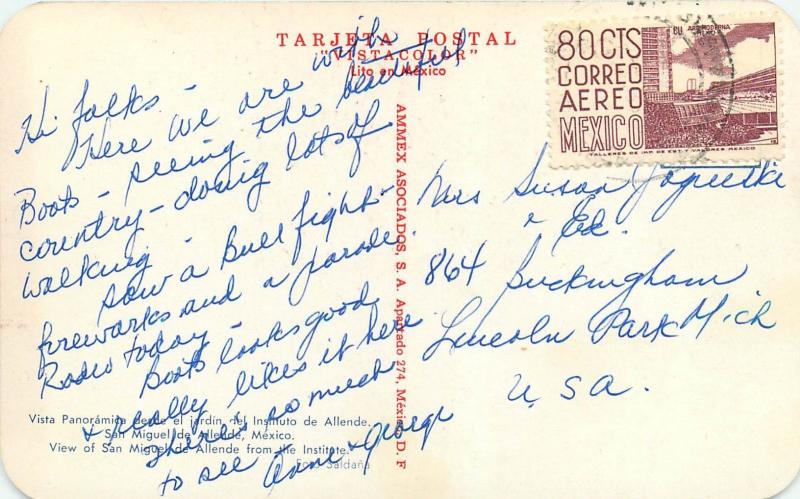 TARJETA POSTAL
"VISTACOLOR"
Lito en México
80 CTS
CORREO
AEREO
MEXICO
TALLERES DE IMP. DE EST. Y VALORES MEXICO
Hi folks -
Here we are with
Boots - seeing the beautiful
country - doing lots of
walking -
Saw a Bull fight -
fireworks and a parade.
Rodeo today -
Boots looks good
& really likes it here
there's so much
to see Anne & George
AMMEX ASOCIADOS, S. A. Apartado 274, México, D. F
Mrs Susan
& Ed.
864 Buckingham
Lincoln Park Mich
U.S.A.
Vista Panorámica desde el jardín del Instituto de Allende.
San Miguel de Allende, México.
View of San Miguel de Allende from the Institute.
Foto Saldaña